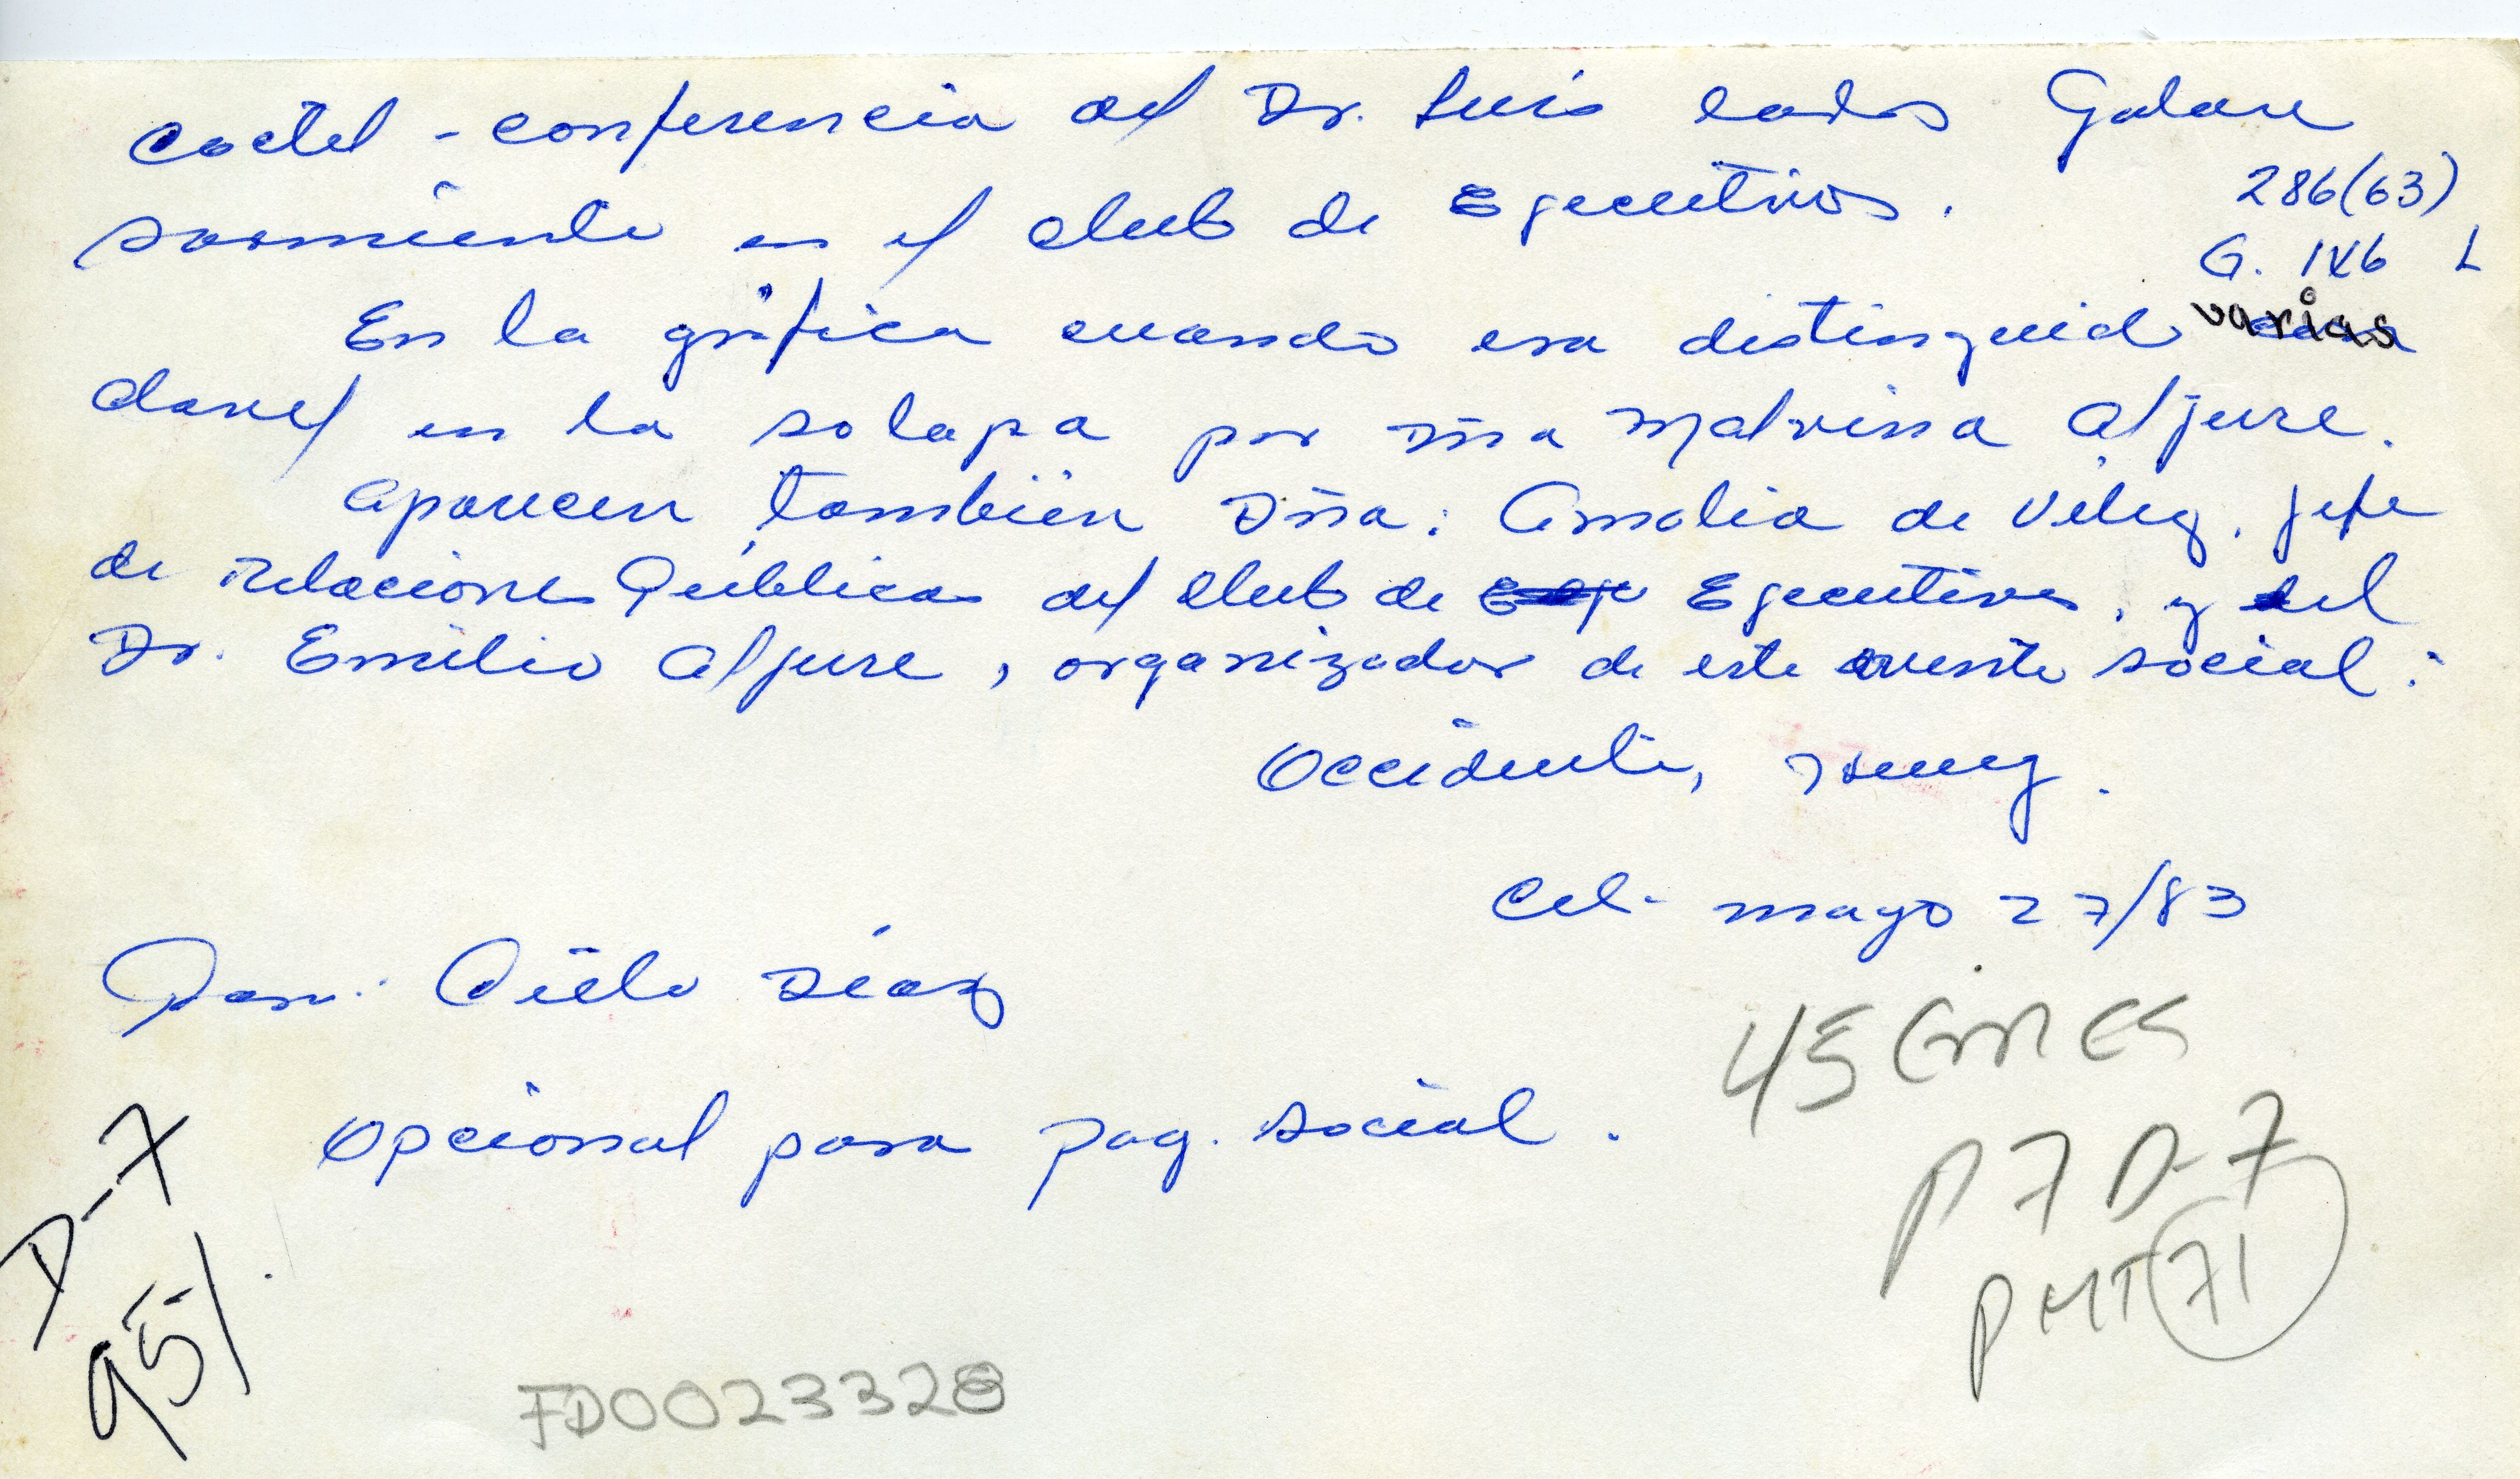 Coctel - conferencia del Dr. Luis Carlos Galan
Sarmiento en el Club de Egecutivos.
286(63)
G. 146 L
En la gráfica cuando era distinguid
varias
clavel en la solapa por Dña Malvina Aljure.
Aparecen también Dña: Amalia de Vélez, jefe
de relaciones Públicas del Club de Egecutivos, y el
Dr. Emilio Aljure, organizador de este evento social:
Occidente,
Cel. mayo 27/83
Para: Cielo Díaz
45 cmes
Opcional para pag. social.
P7 D-7
PMT 71
D-7
95%
FD0023328